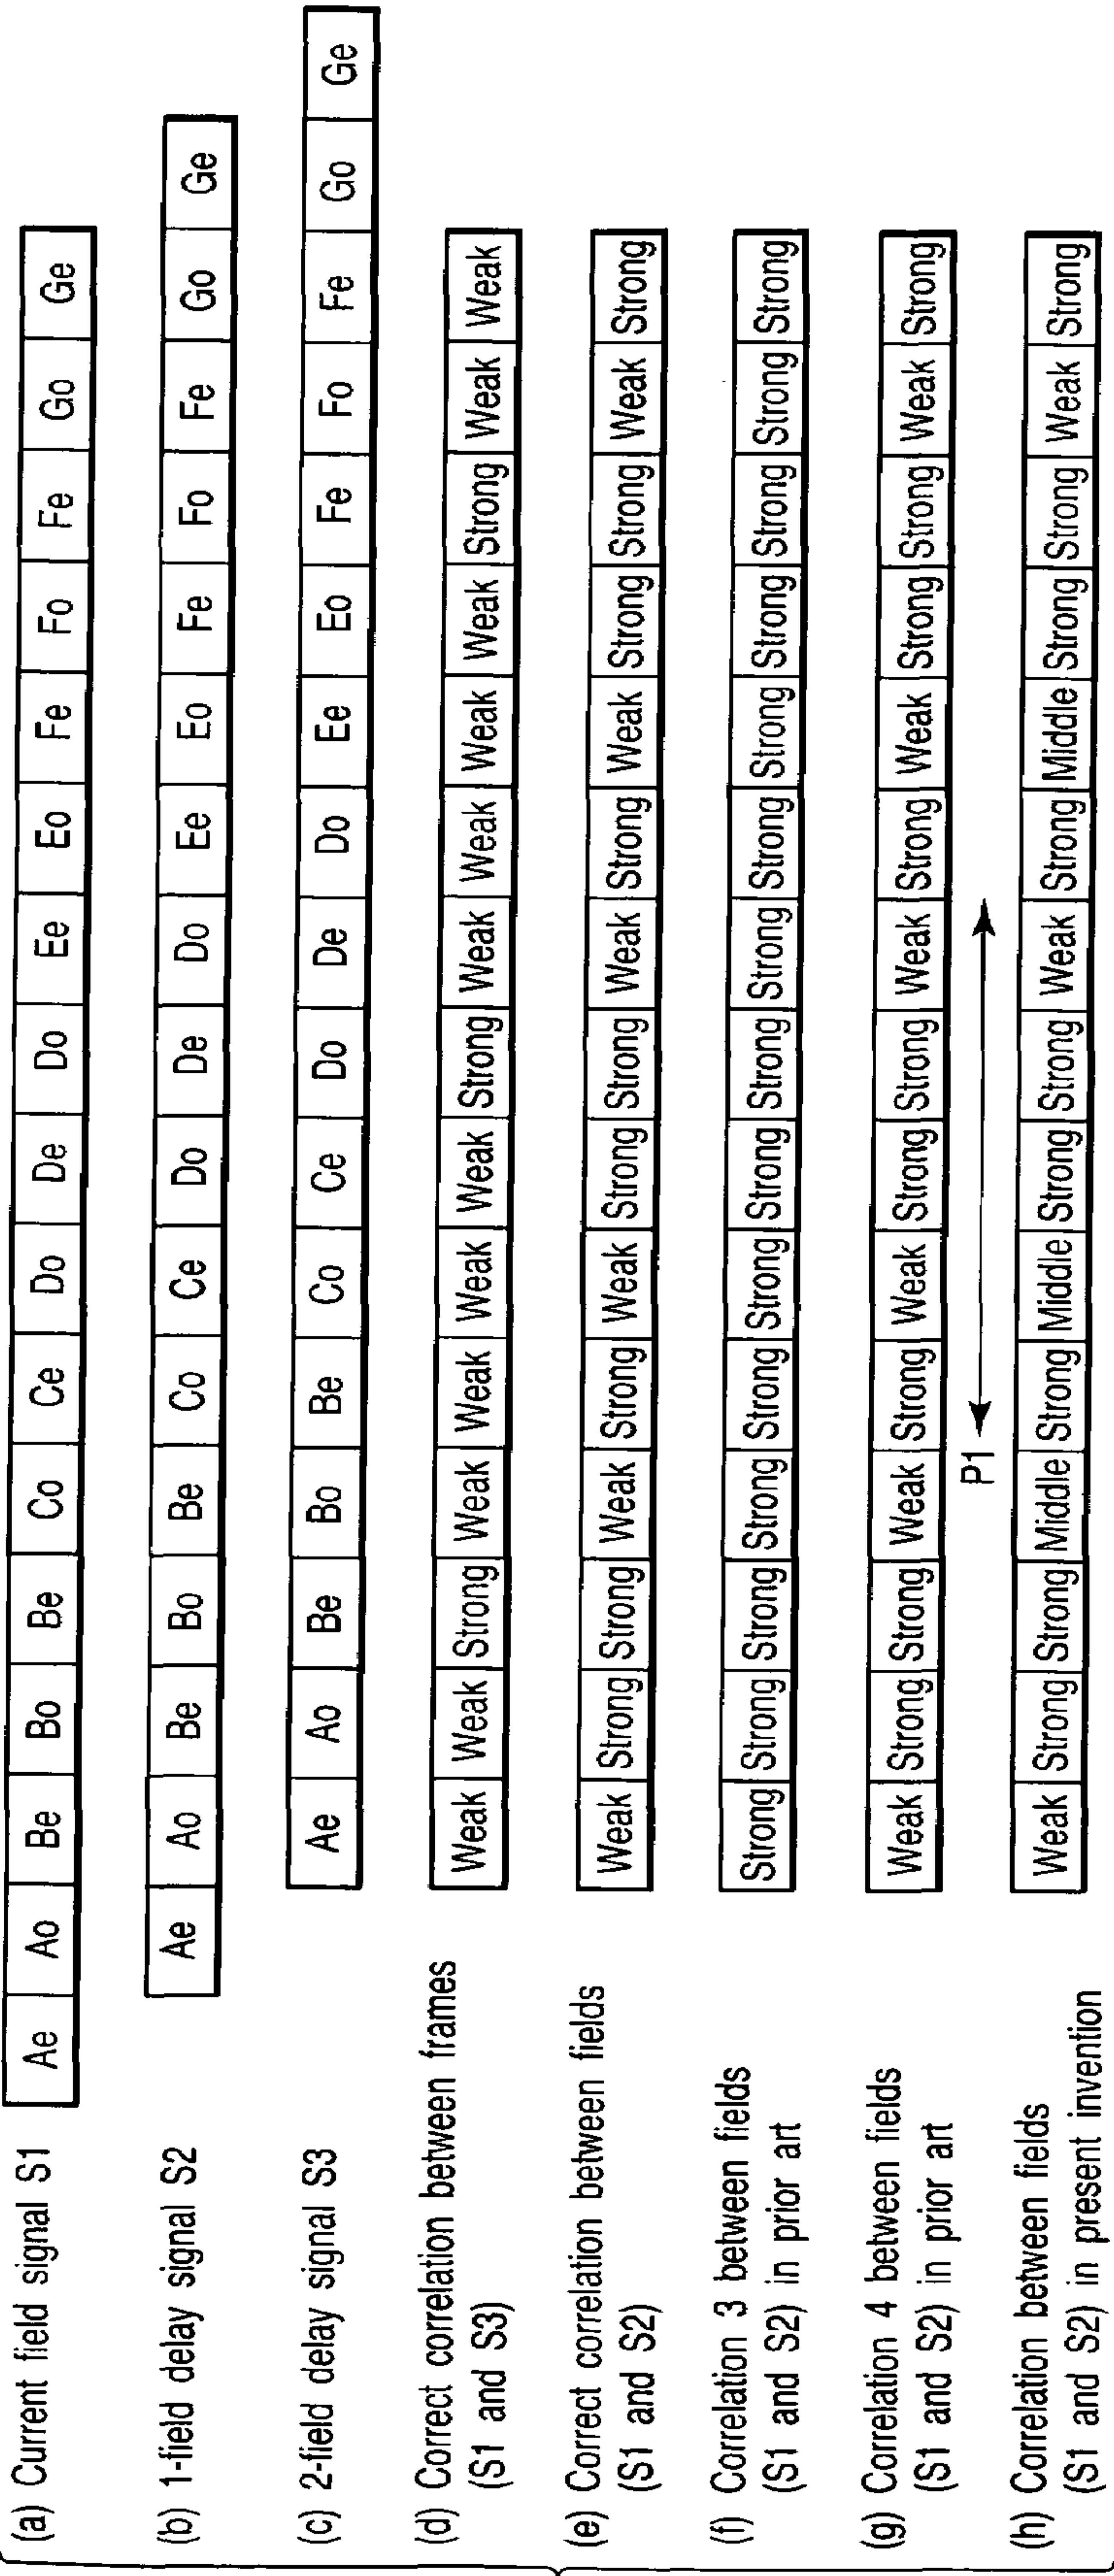 (a) Current field signal S1 Ae Ao Be Bo Be Co Ce Do De Do Ee Eo Fe Fo Fe Go Ge
(b) 1-field delay signal S2 Ae Ao Be Bo Be Co Ce Do De Do Ee Eo Fe Fo Fe Go Ge
(c) 2-field delay signal S3 Ae Ao Be Bo Be Co Ce Do De Do Ee Eo Fe Fo Fe Go Ge
(d) Correct correlation between frames
(S1 and S3) Weak Weak Strong Weak Weak Weak Weak Strong Weak Weak Weak Weak Strong Weak Weak
(e) Correct correlation between fields
(S1 and S2) Weak Strong Strong Weak Strong Weak Strong Strong Weak Strong Weak Strong Strong Weak Strong
(f) Correlation 3 between fields
(S1 and S2) in prior art Strong Strong Strong Strong Strong Strong Strong Strong Strong Strong Strong Strong Strong Strong Strong
(g) Correlation 4 between fields
(S1 and S2) in prior art Weak Strong Strong Weak Strong Weak Strong Strong Weak Strong Weak Strong Strong Weak Strong
P1
(h) Correlation between fields
(S1 and S2) in present invention Weak Strong Strong Middle Strong Middle Strong Strong Weak Strong Middle Strong Strong Weak Strong